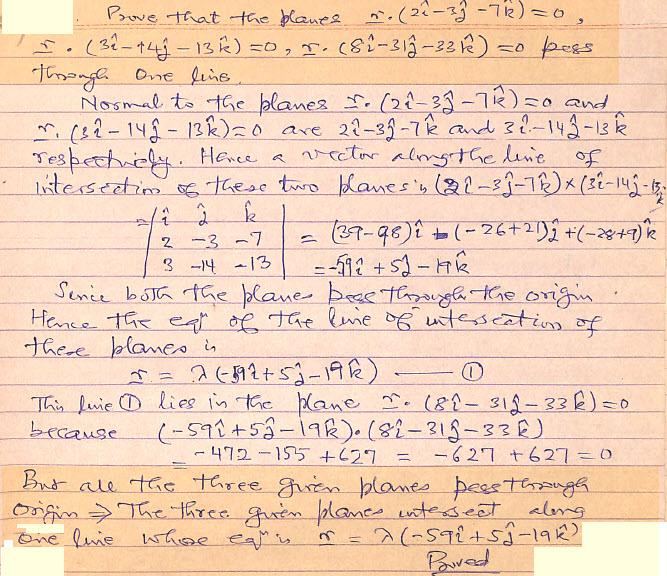 Prove that the planes r.(2î-3ĵ-7k̂)=0,
r.(3î-14ĵ-13k̂)=0, r.(8î-31ĵ-33k̂)=0 pass
through one line.
Normal to the planes r.(2î-3ĵ-7k̂)=0 and
r.(3î-14ĵ-13k̂)=0 are 2î-3ĵ-7k̂ and 3î-14ĵ-13k̂
respectively. Hence a vector along the line of
intersection of these two planes is (2î-3ĵ-7k̂)×(3î-14ĵ-13k̂
=| î ĵ k̂ |
| 2 -3 -7 | = (39-98)î -(-26+21)ĵ+(-28+9)k̂
| 3 -14 -13 | =-59î+5ĵ-19k̂
Since both the planes pass through the origin.
Hence the eqⁿ of the line of intersection of
these planes is
r = λ(-59î+5ĵ-19k̂) —— ①
This line ① lies in the plane r.(8î-31ĵ-33k̂)=0
because (-59î+5ĵ-19k̂).(8î-31ĵ-33k̂)
= -472-155+627 = -627+627=0
But all the three given planes pass through
origin ⇒ The three given planes intersect along
one line whose eqⁿ is r = λ(-59î+5ĵ-19k̂)
Proved